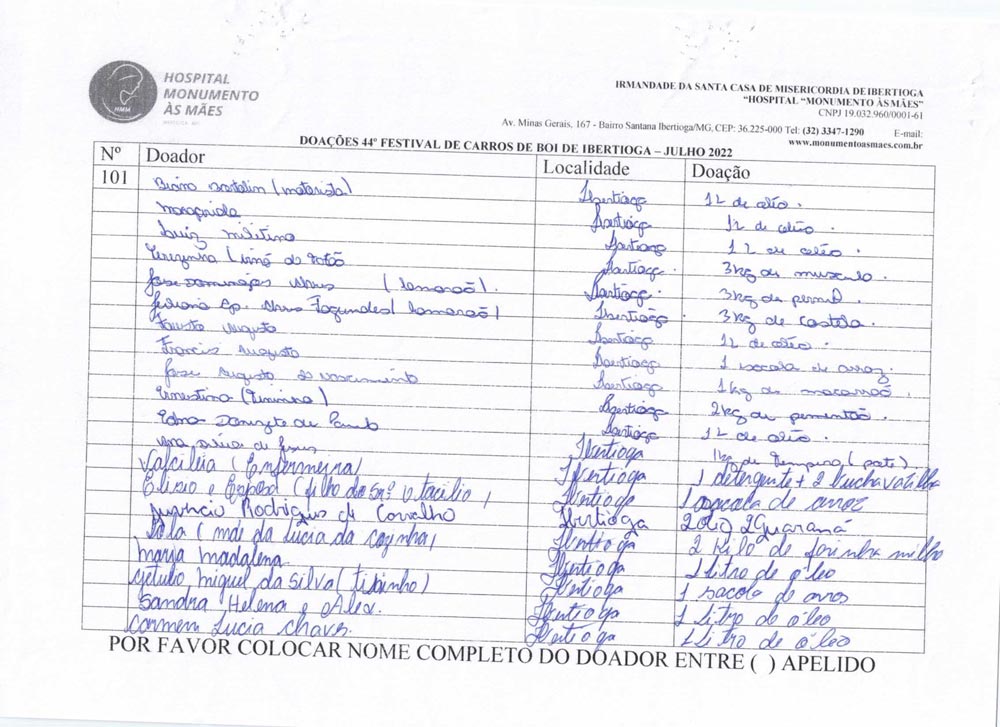 HOSPITAL
MONUMENTO
ÀS MÃES
HMM
IRMANDADE DA SANTA CASA DE MISERICORDIA DE IBERTIOGA
"HOSPITAL "MONUMENTO ÀS MÃES"
CNPJ 19.032.960/0001-61
Av. Minas Gerais, 167 - Bairro Santana Ibertioga/MG, CEP: 36.225-000 Tel: (32) 3347-1290 E-mail:
www.monumentoasmaes.com.br
DOAÇÕES 44º FESTIVAL DE CARROS DE BOI DE IBERTIOGA – JULHO 2022
Nº Doador Localidade Doação
101 (motorista) Ibertioga 1L de oléo.
Ibertioga 1L de oléo.
Luiz Ibertioga 1L de oléo.
Terezinha (irmã do Ibertioga. 3kg de musculo.
Jose Domingos Neves Ibertioga. 3kg de pernil.
Neves Fagundes Ibertioga 3kg de costela.
Fausto Augusto Ibertioga 1L de oléo.
Francis Augusto Ibertioga 1 sacola de arroz.
Jose Augusto do nascimento Ibertioga 1kg de macarraõ.
Ernestina Ibertioga 2kg de pimentão.
Edna Donizete de Paula Ibertioga 1L de oléo.
de Jesus Ibertioga 1kg de Tempero (pote)
Valcileia (Enfermeira) Ibertioga 1 detergente + 2
Elisio e (filho do Snº Otacilio) Ibertioga 1 sacola de arroz
Juvencio Rodrigues de Carvalho Ibertioga 2 Guaraná
(mãe da lucia da cozinha) Ibertioga 2 Kilo de farinha milho
Maria Madalena. Ibertioga 1 litro de óleo
Getulio Miguel da Silva Ibertioga 1 sacola de arros
Sandra Helena e Alex. Ibertioga 1 Litro de óleo
Carmem Lucia Chaves. Ibertioga 1 Litro de óleo
POR FAVOR COLOCAR NOME COMPLETO DO DOADOR ENTRE ( ) APELIDO